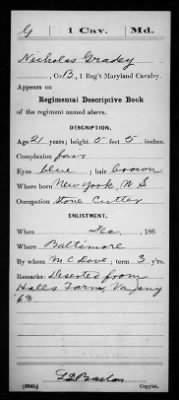 G | 1 Cav. | Md.
Nicholas Gradey
, Co. B, 1 Reg't Maryland Cavalry.
Appears on
Regimental Descriptive Book
of the regiment named above.
DESCRIPTION.
Age 21 years; height 5 feet 5 inches.
Complexion fair
Eyes blue; hair brown
Where born New York, N.
Occupation Stone Cutter
ENLISTMENT.
When Dec., 186
Where Baltimore
By whom McDove; term 3 y'rs.
Remarks: Deserted from
Halls Farm, Va July
'63
Copyist.